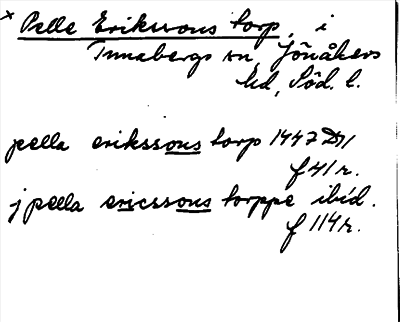 × Pelle Erikssons torp, i
Tunabergs sn, Jönåkers
hd, Söd. l.
pella erikssons torp 1447 D 11
f 41 r.
j pella ericssons torppe ibid.
f 114 r.